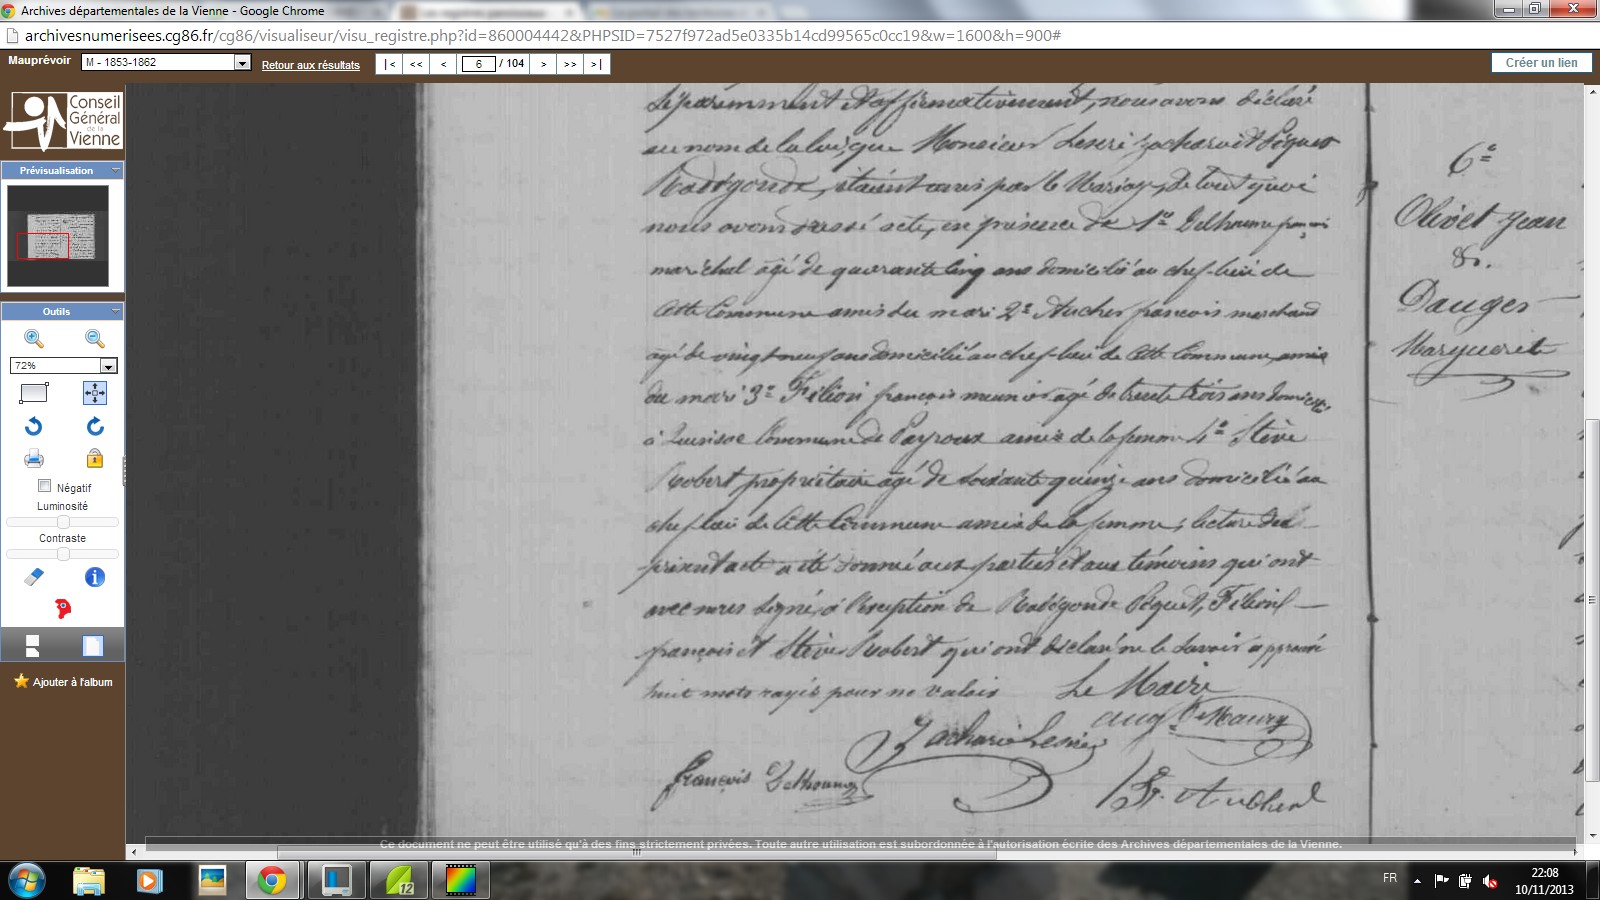 Archives départementales de la Vienne - Google Chrome
archivesnumerisees.cg86.fr/cg86/visualiseur/visu_registre.php?id=860004442&PHPSID=7527f972ad5e0335b14cd99565c0cc19&w=1600&h=900#
Mauprévoir M - 1853-1862 Retour aux résultats |< << < 6 / 104 > >> >| Créer un lien
Conseil
Général
de la
Vienne
Prévisualisation
Outils
72%
Négatif
Luminosité
Contraste
Ajouter à l'album
séparemment et affirmativement, nous avons déclaré
au nom de la loi, que Monsieur Lesné Zacharie et Péquet
Radégonde, étaient unis par le Mariage, de tout quoi
nous avons dressé acte, en présence de 1º Delhoume françois
maréchal âgé de quarante cinq ans domicilié au chef-lieu de
Cette Commune amis du mari 2º Aucher françois marchand
âgé de vingt neuf ans domicilié au chef-lieu de Cette Commune, amis
du mari 3º Félion françois meunier âgé de trente trois ans domicilié
à Commune de Payroux amis de la femme 4º Stève
Robert propriétaire âgé de soixante quinze ans domicilié au
chef lieu de Cette Commune amis de la femme; lecture du
présent acte a été donné aux parties et aux témoins qui ont
avec nous signé, à l'exception de Radégonde Péquet, Félion
françois et Stève Robert qui ont déclaré ne le savoir approuvé
huit mots rayés pour ne valoir Le Maire
Zacharie Lesné
françois Delhoume
6º
Olivet Jean
&.
Dauger
Marguerite
Ce document ne peut être utilisé qu'à des fins strictement privées. Toute autre utilisation est subordonnée à l'autorisation écrite des Archives départementales de la Vienne.
12
FR
22:08
10/11/2013